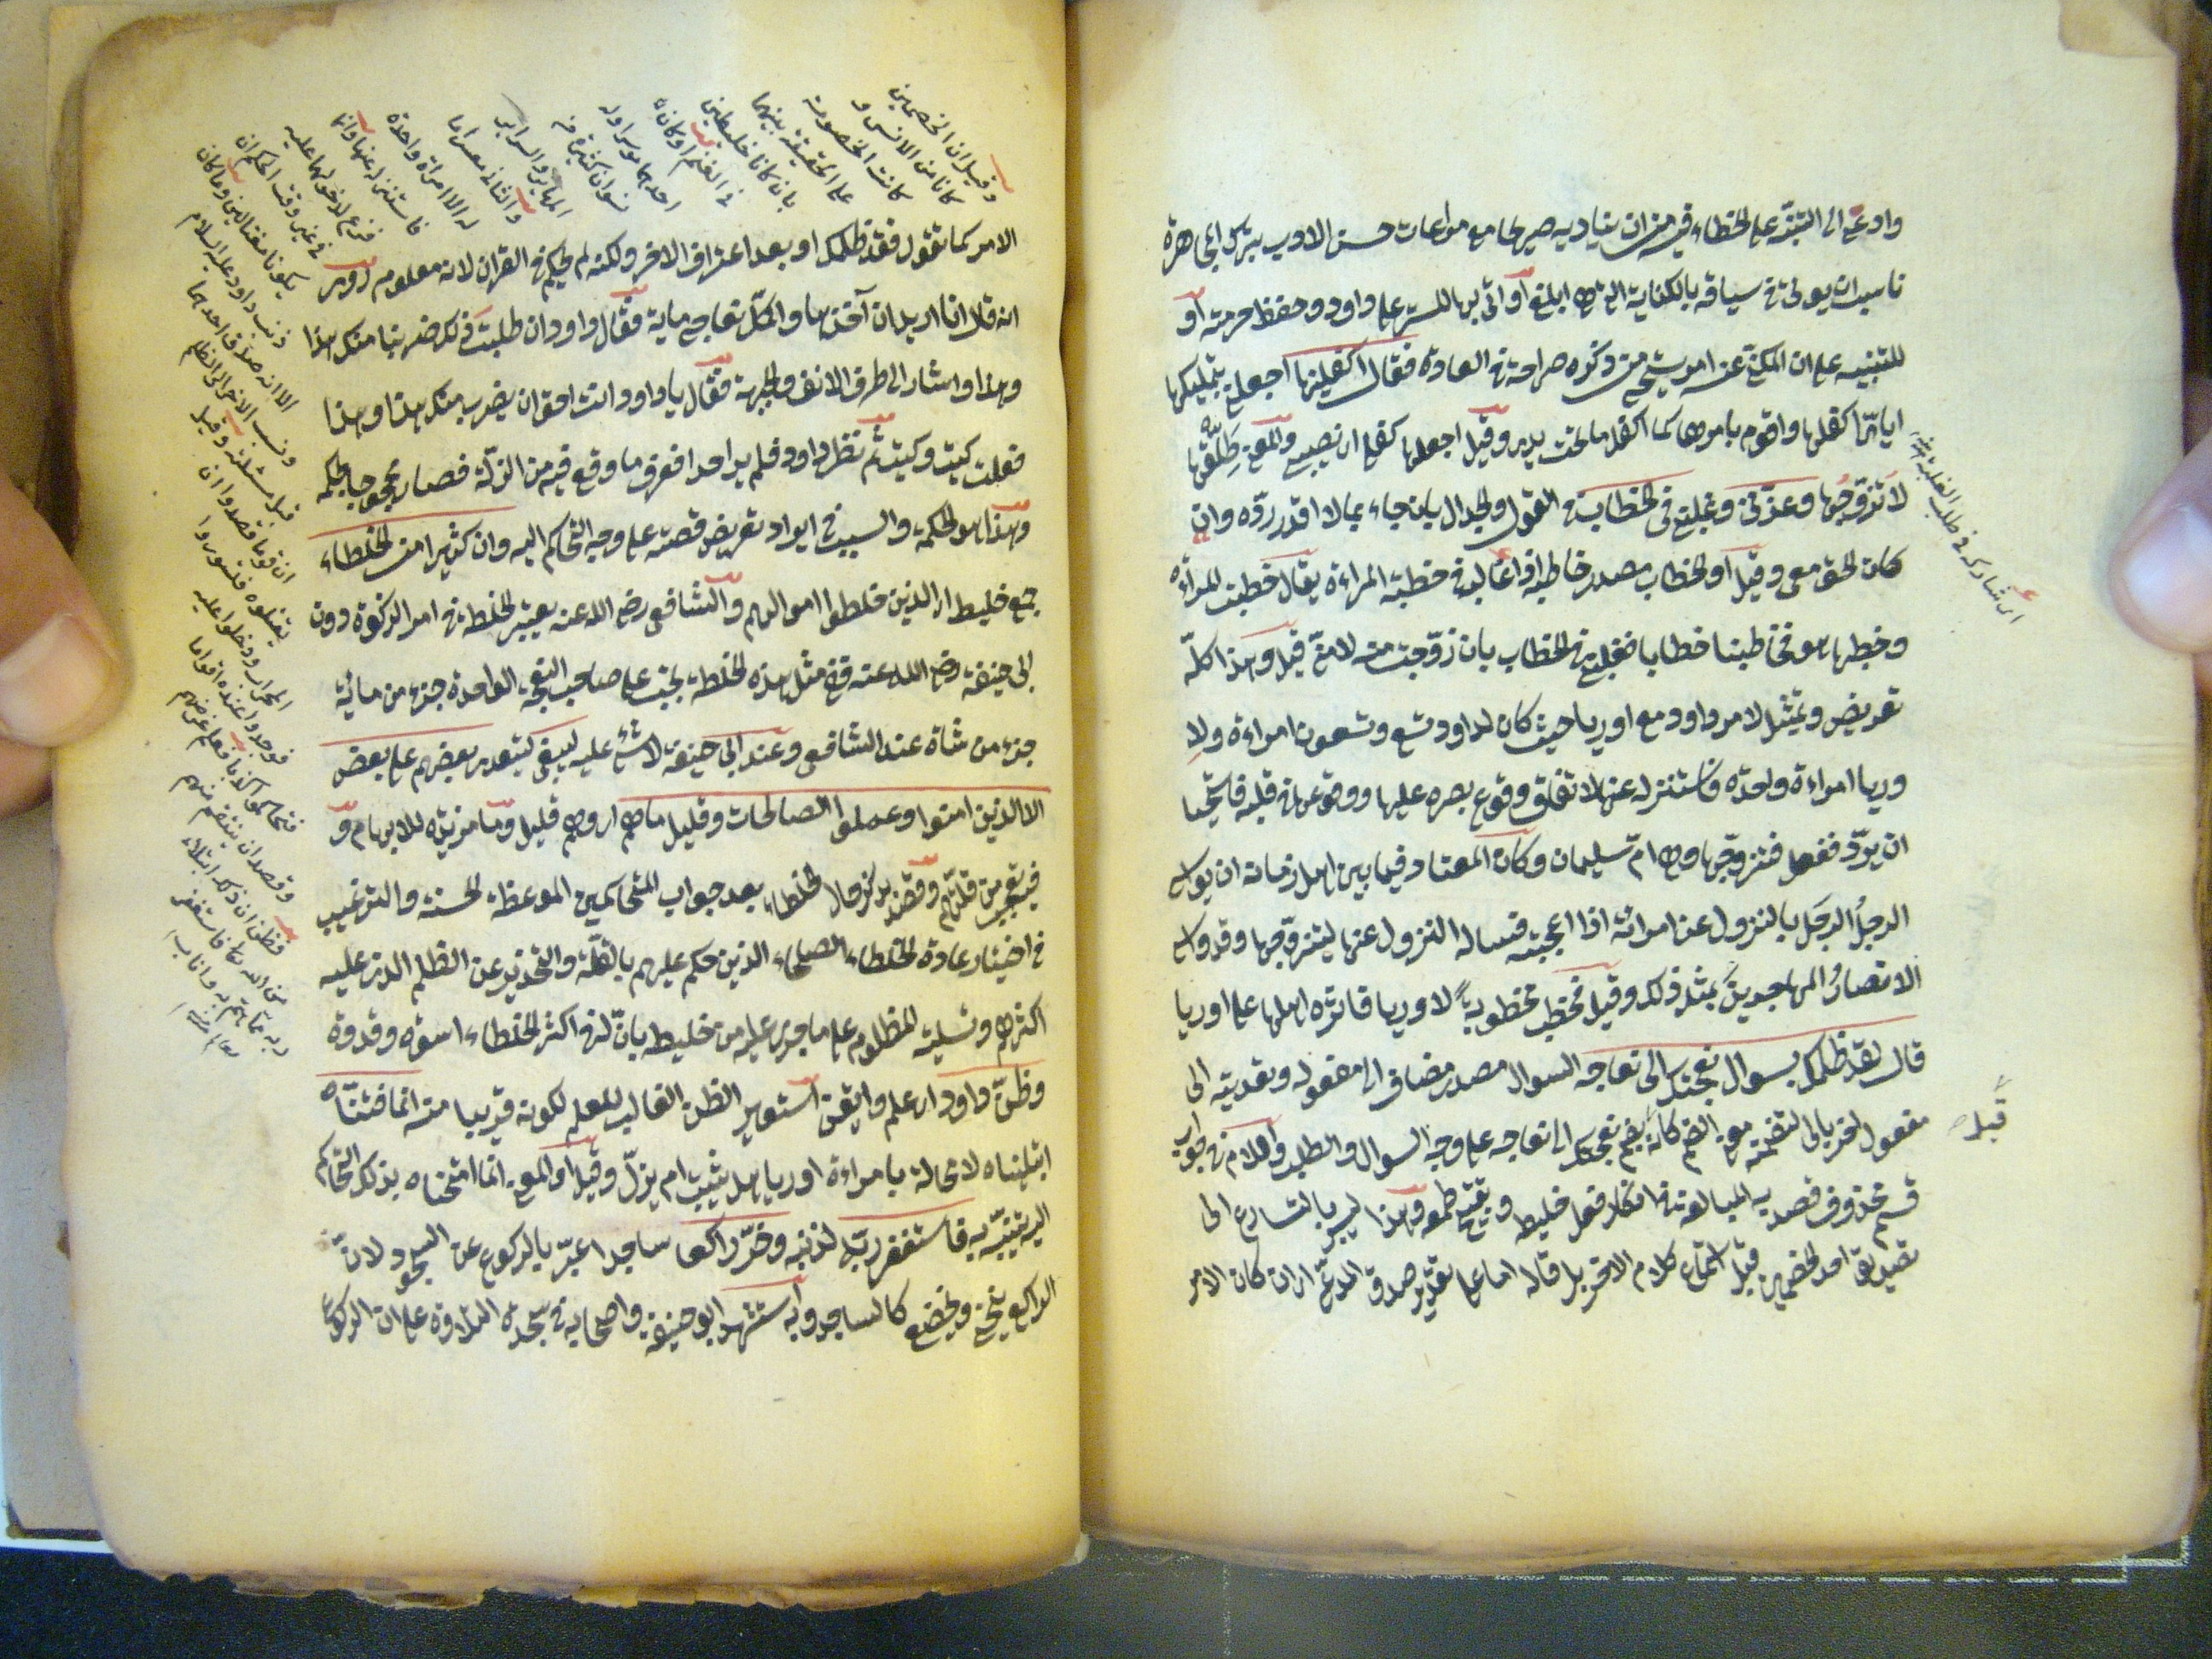 وادعى الى التنبه على الخطاء فيه من ان يناديه صريحا مع مراعات حسن الادب بترك المجاهرة
ناسب ان يوتى في سياقه بالكناية التي هي ابلغ او اتى بها للستر على داود وحفظ حرمته او
للتنبيه على ان المكنى عنه امر يستحى من ذكره صراحة في العادة فقال اكفلنيها اجعلني بتمليكها
اياى اكفلها واقوم بامرها كما اكفل ما تحت يدي وقيل اجعلها كفلى اى نصيبى والمعنى طلقها
لا تزوجها وعزنى وغلبنى فى الخطاب في القول والجدال بان جاء بما لا اقدر رده وان
كان الحق معى وقيل او الخطاب مصدر خاطبه اذا غالبه في خطبة المراءة يقال خطبت المراة
وخطبها هو فخاطبنا خطابا فغلبنى فى الخطاب بان زوجت منه لا منى قيل وهذا كله
تعريض وتمثيل لامر داود مع اوريا حيث كان لداود تسع وتسعون امراءة ولا
وريا امراءة واحدة فاستنزله عنها لاتفاق وقوع بصره عليها ووقوعها في قلبه فاستحيا
ان يرده ففعل فتزوجها وهي ام سليمان وكان المعتاد فيما بين اهل زمانه ان يواسى
الرجل الرجل بالنزول عن امراته اذا اعجبته فيساله النزول عنها ليتزوجها وقد واسى
الانصار المهاجرين بمثل ذلك وقيل خطب مخطوبة لاوريا فاثره اهلها على اوريا
قال لقد ظلمك بسوال نعجتك الى نعاجه السوال مصدر مضاف الى مفعوله وتعديته الى
مفعول اخر بالى لتضمنه معنى الضم كانه بضم نعجتك الى نعاجه على وجه السوال والطلب واللام في جواب
قسم محذوف قصد به المبالغة في انكار فعل خليطه وتقبيح طمعه وهذا ليس بالتسارع الى
تصديق احد الخصمين قبل استماع كلام الاخر بل قاله اما على تقدير صدق المدعى اى ان كان الامر
اى شاركه فى طلب الغلبة
قبل
الامر كما تقول فقد ظلمك او بعد اعتراف الاخر ولكنه لم يحك في القران لانه معلوم روى
انه قال انا اريد ان آخذها واكمل نعاجى ماية فقال داود ان طلبت ذلك ضربنا منك هذا
وهذا واشار الى طرف الانف والجبهة فقال يا داود انت احق ان يضرب منك هذا وهذا
فعلت كيت وكيت ثم نظر داود فلم ير احدا فعرف ما وقع فيه من الزلة فصار محجوجا بحكمه
وهذا هو الحكمة والسبب فى ايراد تعريض قصته على وجه التحاكم اليه وان كثيرا من الخلطاء
جمع خليط اى الذين خلطوا اموالهم والشافعى رضى الله عنه يعتبر الخلطة في امر الزكوة دون
ابى حنيفة رضى الله عنه ففى مثل هذه الخلطة يجب على صاحب النعجة الواحدة جزء من مائة
جزء من شاة عند الشافعى وعند ابى حنيفة لا شئ عليه ليبغى ليتعدى بعضهم على بعض
الا الذين امنوا وعملوا الصالحات وقليل ما هم اى وهم قليل وما مزيدة للابهام و
فيه تعجب من قلتهم وقصد بذكر حال الخلطاء بعد جواب المتحاكمين الموعظة الحسنة والترغيب
فى اختيار عادة الخلطاء الصلحاء الذين حكم عليهم بالقلة والتحذير عن الظلم الذى عليه
اكثرهم وتسلية المظلوم على ما جرى عليه من خليطه بان له في اكثر الخلطاء اسوة وقدوة
وظن داود اى علم وايقن استعير الظن الغالب للعلم لكونه قريبا منه انما فتناه
ابتليناه لا محالة بامراءة اوريا هل يثبت ام يزل وقيل او المعنى انما امتحناه بذلك التحاكم
اليه ليتنبه به فاستغفر ربه لذنبه وخر راكعا ساجدا عبر بالركوع عن السجود لان
الراكع ينحنى ويخضع كالساجد وبه استشهد ابو حنيفة واصحابه في سجدة التلاوة على ان الركوع
وقيل ان الخصمين
كانا من الانس و
كانت الخصومة
على الحقيقة بينهما
بان كانا خليطين
فى الغنم او كان
احدهما موسرا وله
نسوان كثيرة من
المهاير والسرارى
والثانى معسرا ما
له الا امراة واحدة
فاستنزله عنها وانما
فزع لدخولهما عليه
فى غير وقت الحكم ان
يكونا مغتالين وما كان
ذنب داود عليه السلام
الا انه صدق احدهما
ونسب الاخر الى الظلم
قبل مسئلته وقيل
ان قوما قصدوا ان
يقتلوه فتسوروا
المحراب ودخلوا عليه
فوجدوا عنده اقواما
فتحاكموا كذبا فعلم غرضهم
وقصد ان ينتقم منهم
فظن ان ذلك ابتلاء
من الله تعا فاستغفر
ربه مما هم به واناب